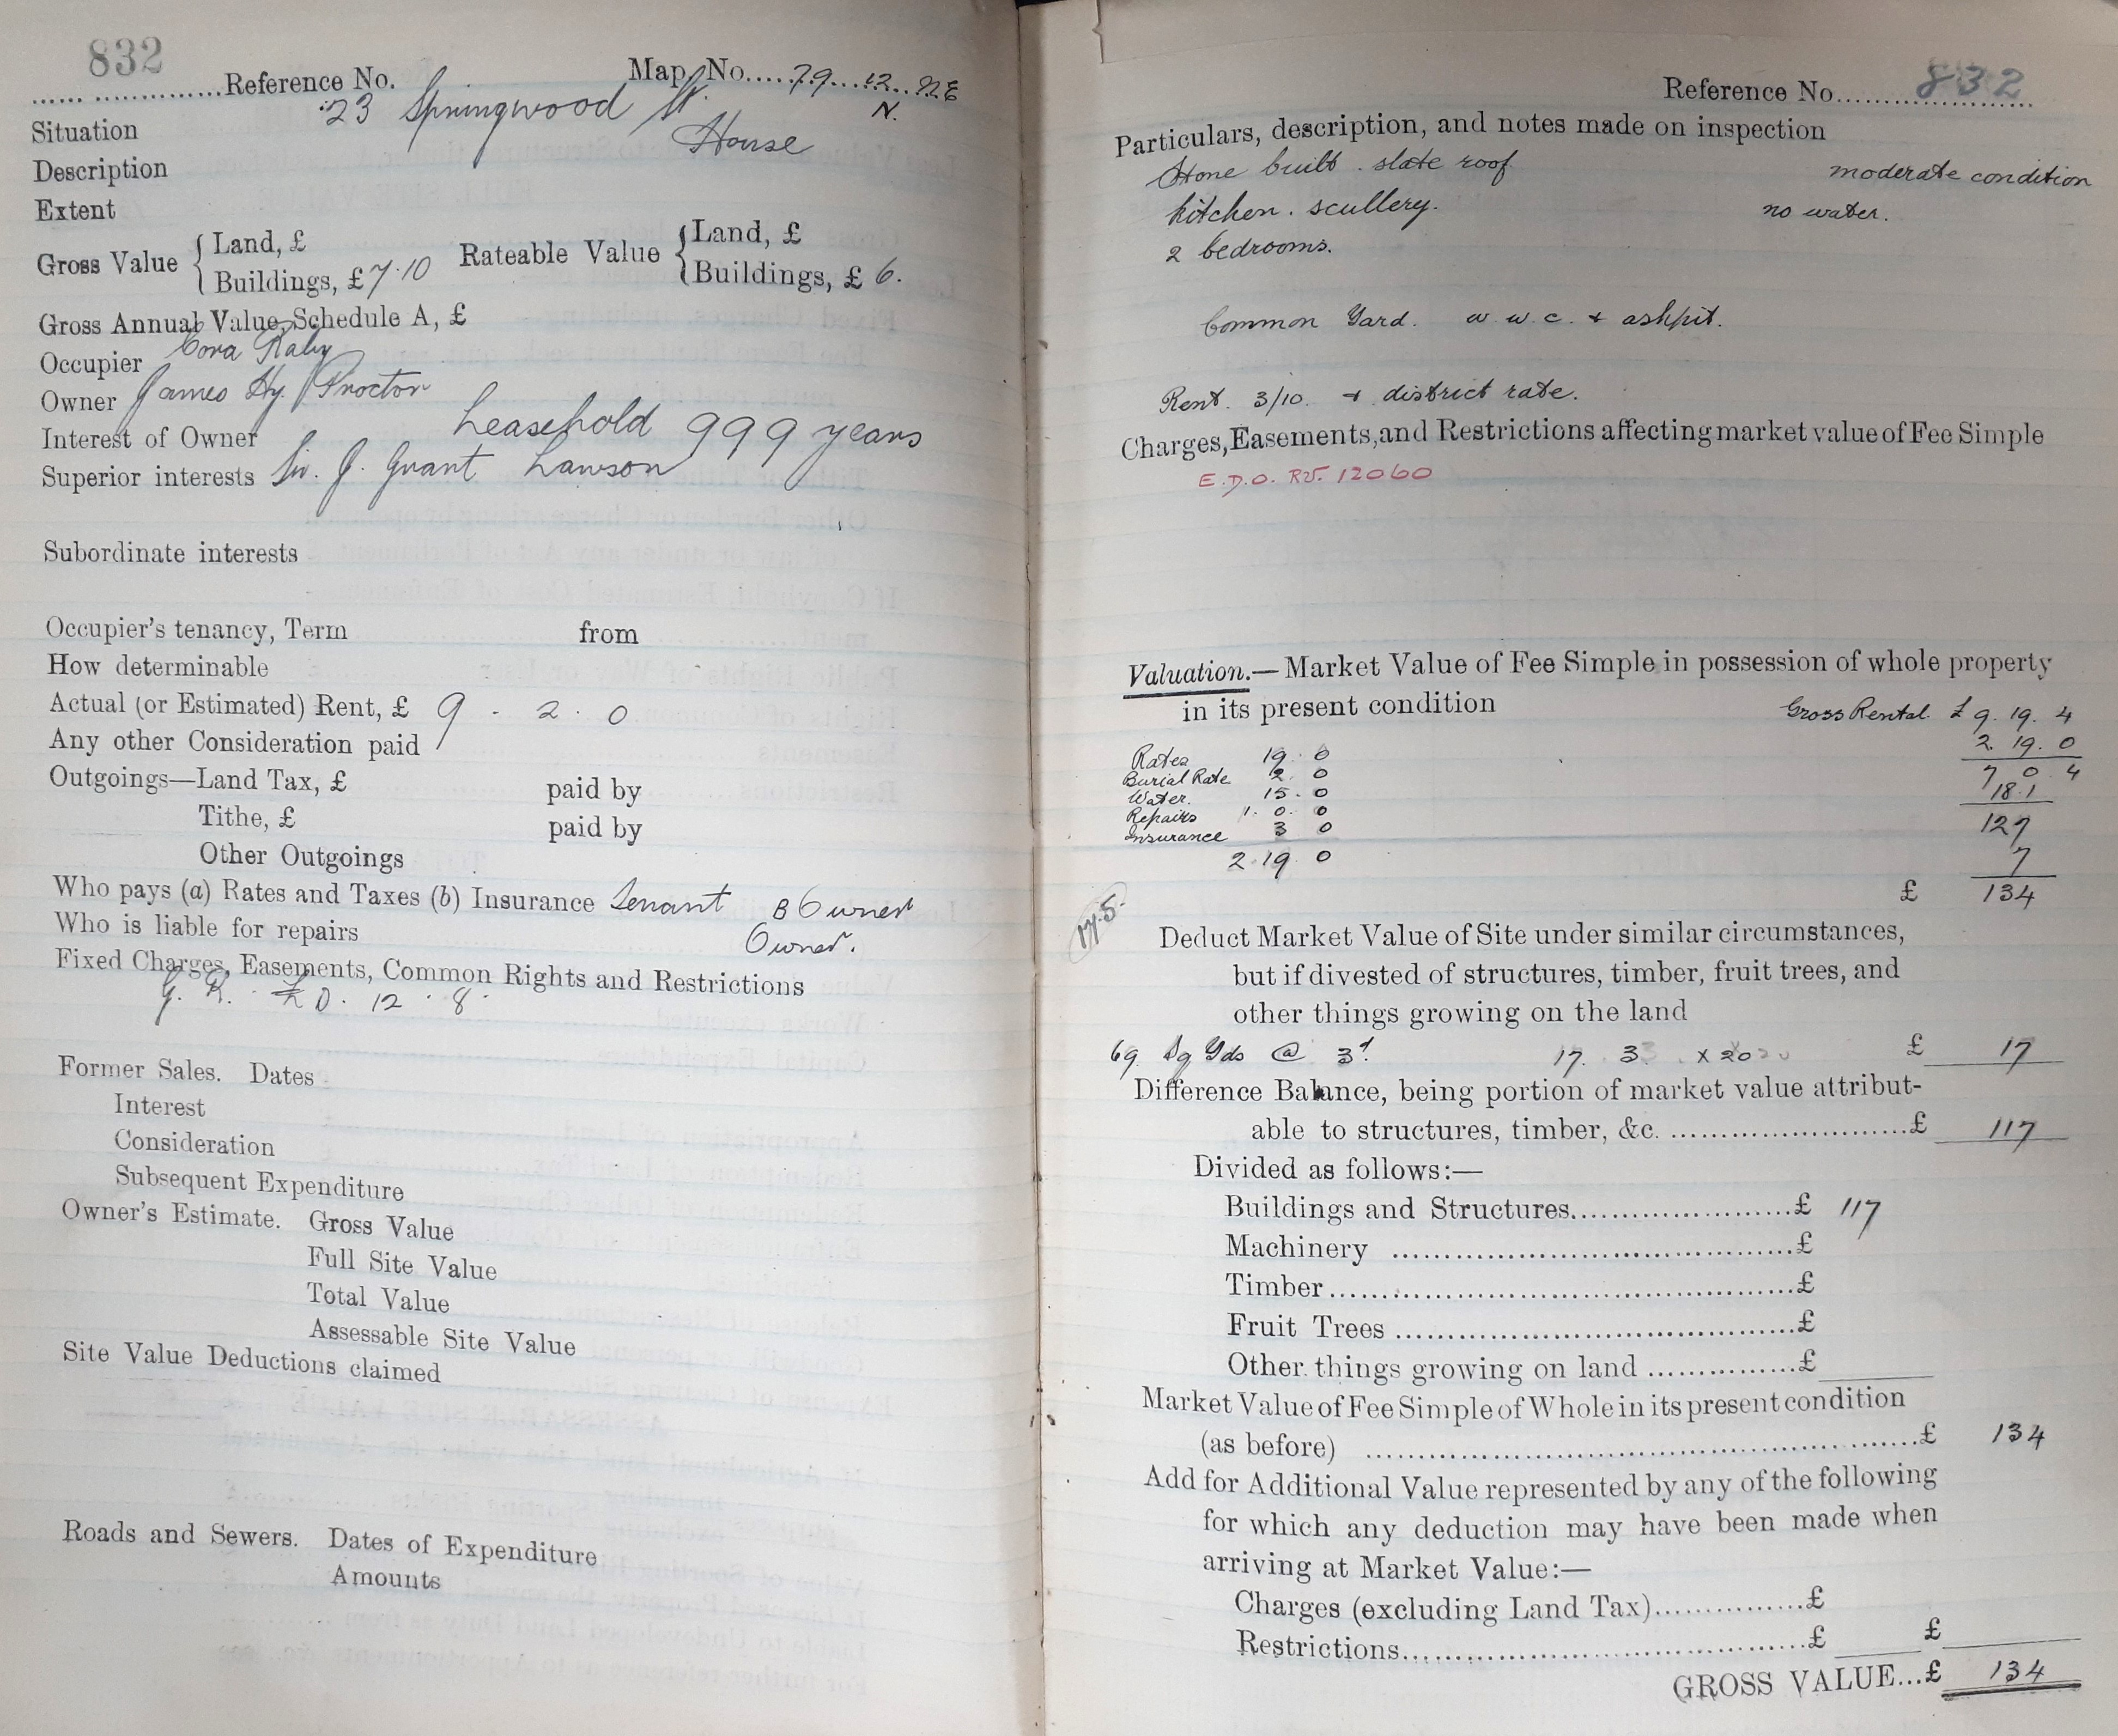 832
...... ..............Reference No. Map No.....79...12...NE
N.
Situation 23 Springwood St.
Description House
Extent
Gross Value { Land, £ Rateable Value { Land, £
Buildings, £ 7.10 Buildings, £ 6.
Gross Annual Value, Schedule A, £
Occupier Cora Raby
Owner James Hy. Proctor
Interest of Owner Leasehold 999 years
Superior interests Sir. J. Grant Lawson
Subordinate interests
Occupier's tenancy, Term from
How determinable
Actual (or Estimated) Rent, £ 9 - 2 . 0
Any other Consideration paid
Outgoings—Land Tax, £ paid by
Tithe, £ paid by
Other Outgoings
Who pays (a) Rates and Taxes (b) Insurance Tenant B Owner
Who is liable for repairs Owner.
Fixed Charges, Easements, Common Rights and Restrictions
G. R. £0. 12. 8.
Former Sales. Dates
Interest
Consideration
Subsequent Expenditure
Owner's Estimate. Gross Value
Full Site Value
Total Value
Assessable Site Value
Site Value Deductions claimed
Roads and Sewers. Dates of Expenditure
Amounts
Reference No. 832
Particulars, description, and notes made on inspection
Stone built . slate roof moderate condition
kitchen . scullery. no water.
2 bedrooms.
Common Yard. w.w.c. + ashpit.
Rent. 3/10. + district rate.
Charges, Easements, and Restrictions affecting market value of Fee Simple
E.D.O. RV. 12060
Valuation.—Market Value of Fee Simple in possession of whole property
in its present condition Gross Rental £ 9. 19. 4
Rates 19. 0 2. 19. 0
Burial Rate 2. 0 7 0. 4
Water. 15. 0 18.1
Repairs 1. 0. 0 127
Insurance 3 0
2.19 0 7
£ 134
17.5.
Deduct Market Value of Site under similar circumstances,
but if divested of structures, timber, fruit trees, and
other things growing on the land
69 Sq Yds @ 3d 17. 3 x 20 £ 17
Difference Balance, being portion of market value attribut-
able to structures, timber, &c. ..........................£ 117
Divided as follows:—
Buildings and Structures......................£ 117
Machinery ........................................£
Timber..............................................£
Fruit Trees .......................................£
Other things growing on land ...............£
Market Value of Fee Simple of Whole in its present condition
(as before) .........................................................£ 134
Add for Additional Value represented by any of the following
for which any deduction may have been made when
arriving at Market Value:—
Charges (excluding Land Tax)...............£
Restrictions.........................................£ £
GROSS VALUE...£ 134